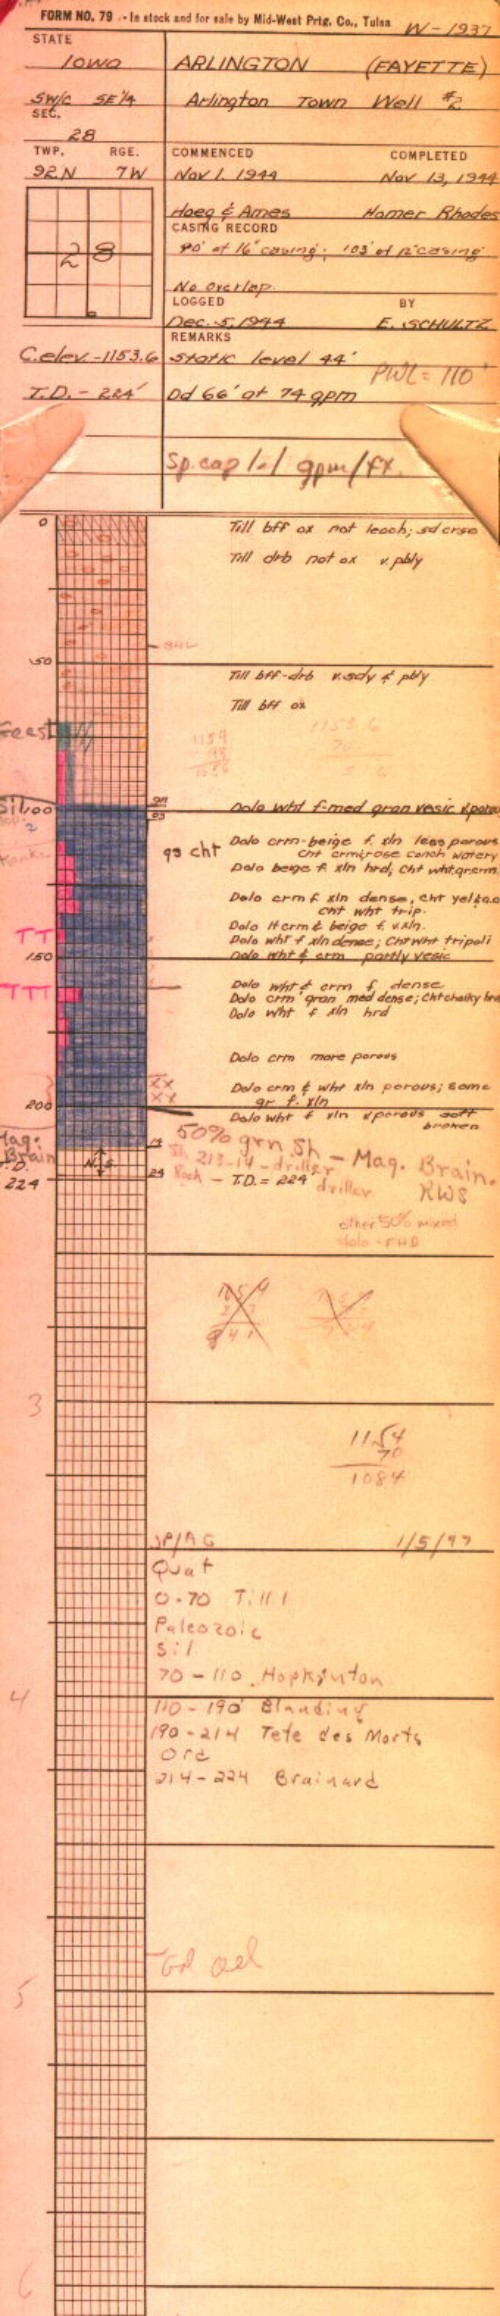 FORM NO. 79 - In stock and for sale by Mid-West Prtg. Co., Tulsa W-1937
STATE
Iowa ARLINGTON (FAYETTE)
SW/c SE 1/4 Arlington Town Well #2
SEC.
28
TWP. RGE. COMMENCED COMPLETED
92N 7W Nov 1. 1944 Nov 13, 1944
Hoeg & Ames Homer Rhodes
CASING RECORD
28 90' of 16" casing; 103' of 12" casing
No overlap.
LOGGED BY
Dec. 5, 1944 E. SCHULTZ
REMARKS
C.elev.-1153.6 Static level 44'
PWL = 110'
T.D. - 224' Dd 66' at 74 gpm
Sp. cap 1.1 gpm/ft.
0 Till bff ox not leach; sd crse
Till drb not ox v. pbly
50
Till bff-drb v. sdy & pbly
Till bff ox
Geest
1154
1153.6
70
Sil 100 Dolo wht f-med gran vesic v.porous
Dolo crm-beige f. xln less porous
93 cht Cht crm&rose conch watery
Dolo beige f. xln hrd, Cht wht,grcrm.
Dolo crm f xln dense, cht
cht wht trip.
Dolo lt crm & beige f. v.xln.
TT Dolo wht f xln dense; Cht wht tripoli
150 Dolo wht & crm partly vesic
TTT Dolo wht & crm f dense
Dolo crm gran med dense; Cht chalky hrd
Dolo wht f xln hrd
Dolo crm more porous
XX Dolo crm & wht xln porous; some
XX gr f. xln
200 Dolo wht f xln v.porous soft
broken
Maq. 14 50% grn Sh - Maq. Brain.
Brain Sh 213-14 - driller
T.D. N.S 24 Rock - T.D. = 224' driller RWS
224
other 50% mixed
dolo - FHD
3
1154
70
1084
JP/AG 1/5/97
Quat
0-70 Till
Paleozoic
Sil
70-110 Hopkinton
4 110-190 Blanding
190-214 Tete des Morts
Ord
214-224 Brainard
5
6